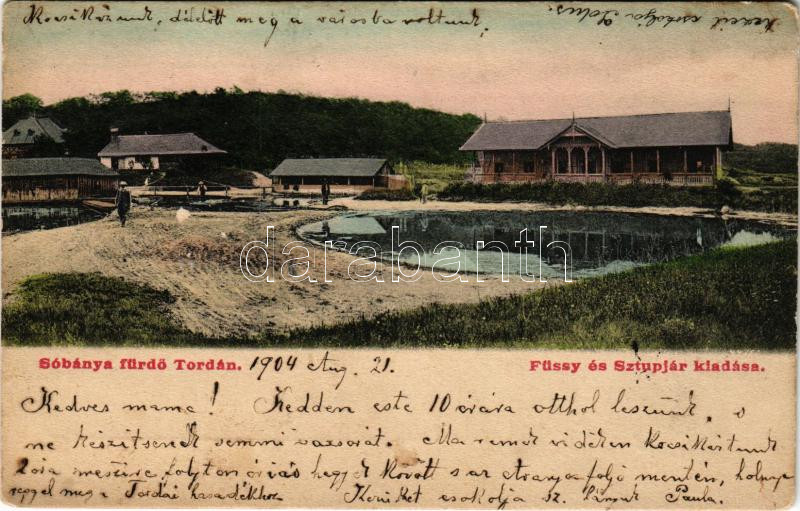 Kocsikázunk, délelőtt meg a városba voltunk,
csókolja
darabanth
Sóbánya fürdő Tordán. 1904 Aug. 21.
Füssy és Sztupjár kiadása.
Kedves mama! Kedden este 10 órára otthol leszünk,
ne készítsenek semmi vacsorát. Ma remek vidéken kocsikáztunk
folyton óriás hegyek között s az Aranyos folyó mentén, holnap
reggel meg a Tordai hasadékhoz Kezüket csókolja sz. lányuk Paula.